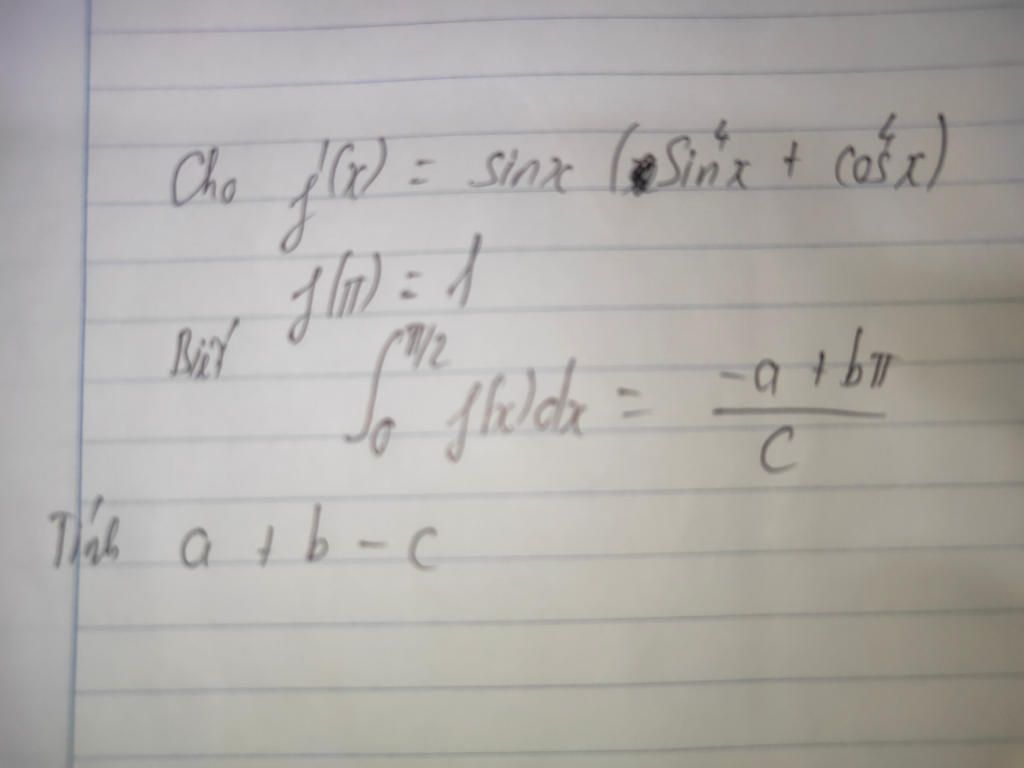 Cho f'(x) = sinx (Sin⁴x + cos⁴x)
f(π) = 1
Biết ∫₀^π/2 f(x)dx = (-a + bπ)/c
Tính a + b - c